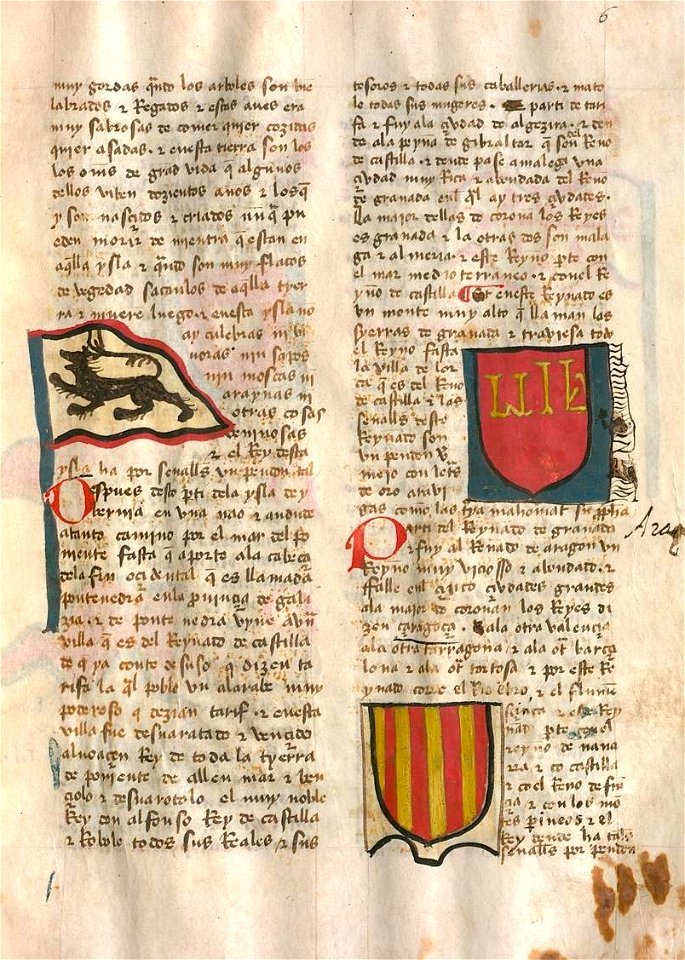 6
muy gordas qndo los arboles son bie
labrados z Regados z estas aves era
muy sabrosas de comer quier cozidas
quier asadas. z en esta tierra son los
los oms de grad vida q algunos
dellos viuen dozientos años z los q
y son nascidos z criados nūq pu
eden morir de mientra q estan en
aqlla ysla z qndo son muy flacos
de vegedad sacanlos de aqlla tyer
ra z muere luego. z en esta ysla no
ay culebras ni bi
uoras nin sapos
nin moscas ni
arañas ni
otras cosas
veninosas
z el Rey desta
ysla ha por señalls un pendon tal
Despues desto pti dela ysla de y
beynia en una nao z andude
atanto camino por el mar del po
niente fasta q aporte ala cabeça
dela fin ocidental q es llamada
pontenedra en la prouincia de gali
zia. z de ponte nedra vyne a una
villa q es del Reynado de castilla
de q ya conte de suso q dizen ta
rifa la ql poblo un alarabe muy
poderoso q dezian tarif. z en esta
villa fue desbaratado z vencido
alboaçen Rey de toda la tyerra
de poniente de allen mar z ven
ciolo z desbaratolo el muy noble
Rey don alfonso Rey de castilla
z Robole todos sus Reales z sus
tesoros z todas sus caballerias. z mato
le todas sus mugeres. parti de tari
fa z fuy ala çiudad de algezira. z den
de ala peyna de gibraltar q son del Reno
de castilla. z dende pase a malega una
çiudad muy Rica z abondada del Reno
de granada enl ql ay tres çiudades.
lla maior dellas do corona los Reyes
es granada z la otras dos son mala
ga z almeria. z este Reyno pte con
el mar medio terraneo. z con el Re
yno de castilla Et en este Reynado es
un monte muy alto q llaman los
syerras de granada z traviesa todo
el Reyno fasta
la villa de lor
ca q es del Reno
de castilla z las
señalls deste
Reynado son
un pendon
mejo con letrs
de oro aravi
gas como las traya mahomat su ppha
Parti del Reynado de granada
z fuy al Renado de aragon un
Reyno muy vicioso z abondado. z
ffalle en el cinco çiudades grandes
ala maior do coronan los Reyes di
zen çaragoça. ala otra valencia
ala otra tarragona z ala otra barçe
lona z ala otra tortosa z por este Re
ynado corre el Rio ebro, z el flumen
Arag
sinca z este Rey
nado parte con el
reyno de nava
rra z co castilla
z co el Reno de frn
çia z con los mo
tes pineos z el
Rey dende ha tals
señalls por pendon